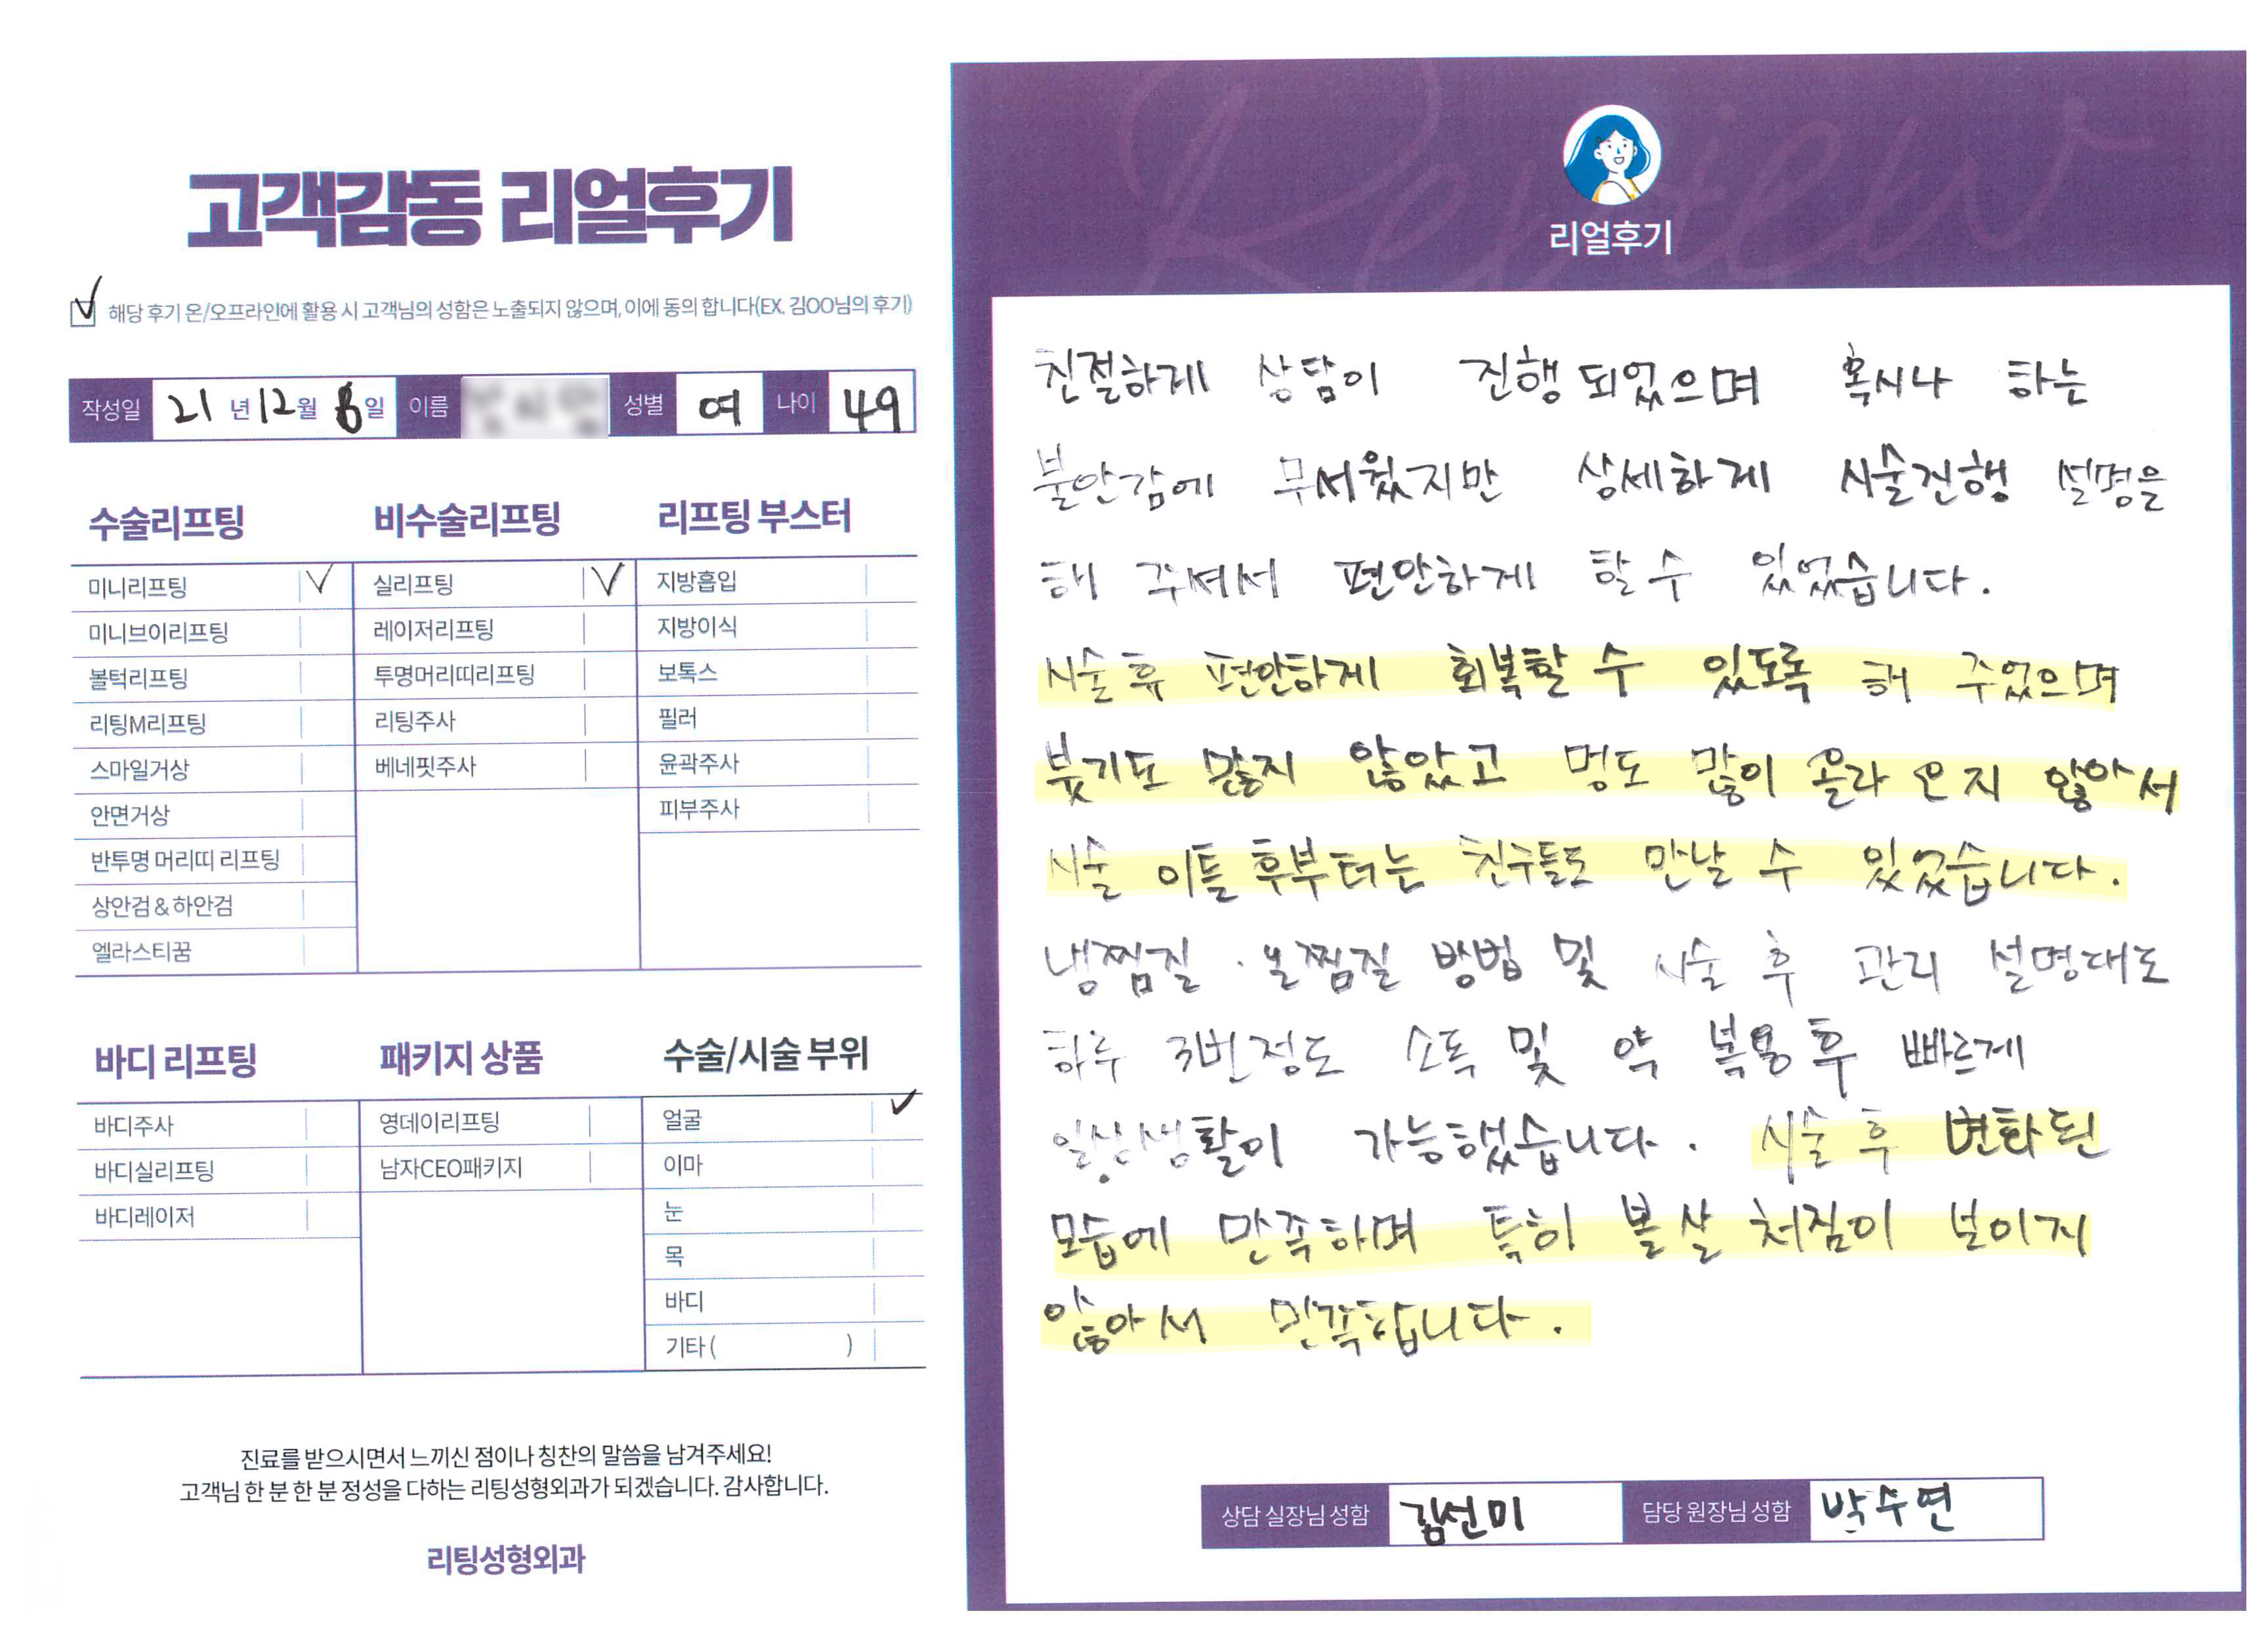 고객감동 리얼후기
해당 후기 온/오프라인에 활용 시 고객님의 성함은 노출되지 않으며, 이에 동의 합니다(EX. 김OO님의 후기)
작성일 21 년 12 월 8 일 이름 성별 여 나이 49
수술리프팅 비수술리프팅 리프팅 부스터
미니리프팅 실리프팅 지방흡입
미니브이리프팅 레이저리프팅 지방이식
볼턱리프팅 투명머리띠리프팅 보톡스
리팅M리프팅 리팅주사 필러
스마일거상 베네핏주사 윤곽주사
안면거상 피부주사
반투명 머리띠 리프팅
상안검 & 하안검
엘라스티꿈
바디 리프팅 패키지 상품 수술/시술 부위
바디주사 영데이리프팅 얼굴
바디실리프팅 남자CEO패키지 이마
바디레이저 눈
목
바디
기타 ( )
진료를 받으시면서 느끼신 점이나 칭찬의 말씀을 남겨주세요!
고객님 한 분 한 분 정성을 다하는 리팅성형외과가 되겠습니다. 감사합니다.
리팅성형외과
Review
리얼후기
친절하게 상담이 진행 되었으며 혹시나 하는
불안감에 무서웠지만 상세하게 시술진행 설명을
해 주셔서 편안하게 할 수 있었습니다.
시술 후 편안하게 회복할 수 있도록 해 주었으며
붓기도 많지 않았고 멍도 많이 올라 오지 않아서
시술 이틀 후부터는 친구들도 만날 수 있었습니다.
냉찜질 · 온찜질 방법 및 시술 후 관리 설명대로
하루 3번정도 소독 및 약 복용 후 빠르게
일상생활이 가능했습니다. 시술 후 변화된
모습에 만족하며 특히 볼살 처짐이 보이지
않아서 만족합니다.
상담 실장님 성함 김선미 담당 원장님 성함 박수연